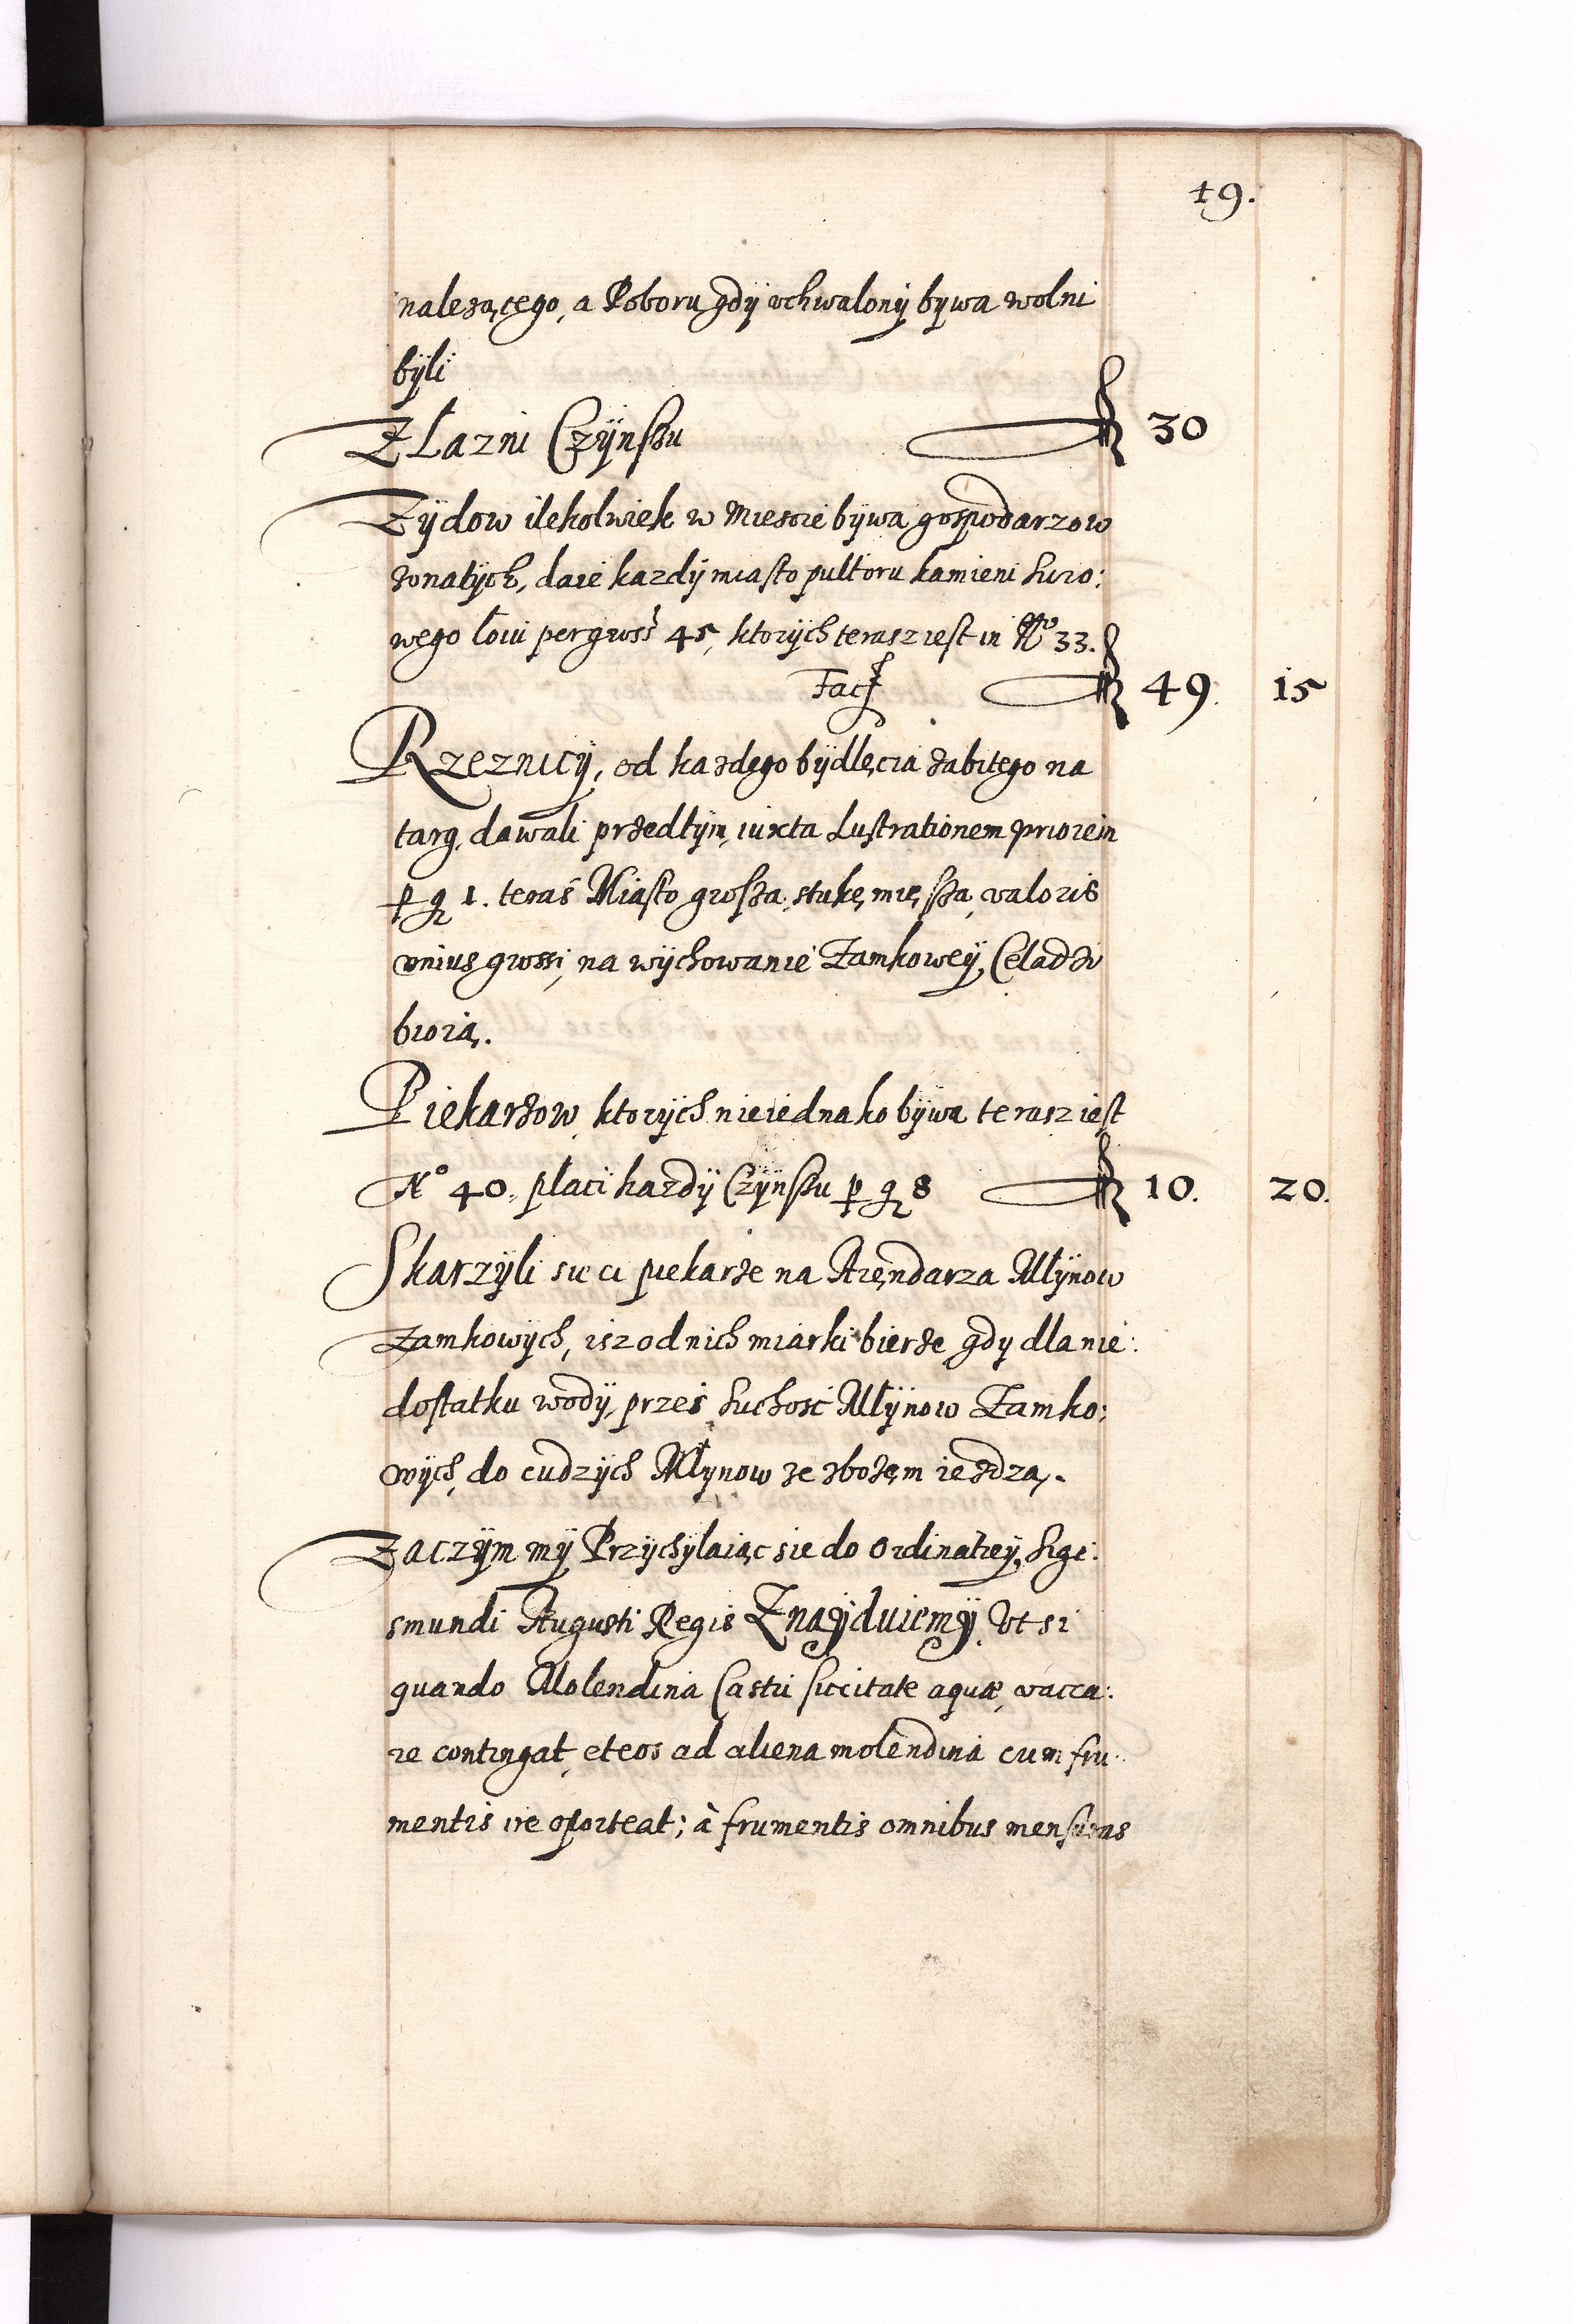 19.
należącego, a Poboru gdÿ vchwalonÿ bÿwa wolni
bÿli
Z Łazni Czÿnszu 30
Zÿdow ilekolwiek w Miescie bÿwa gospodarzow
zonatÿch, daie kazdÿ miasto pułtoru kamieni Suro:
wego łoiu per gross 45, ktorÿch teraz iest in N° 33.
Fac 49. 15
Rzeznicÿ, od kazdego bÿdlęcia zabitego na
targ, dawali przedtÿm, iuxta Lustrationem priorem
p gr 1. teraś Miasto grosza, stukę mięsza, valoris
vnius grossi, na wÿchowanie Zamkoweÿ Celadzi
biorą.
Piekarzow, ktorÿch nieiednako bÿwa teraz iest
N° 40. płaci kazdÿ Czÿnszu p gr 8 10. 20.
Skarzÿli sie ci piekarze na Arendarza Młÿnow
Zamkowÿch, isz od nich miarki bierze gdy dla nie:
dostatku wodÿ, prześ Suchość Młÿnow Zamko:
wÿch, do cudzÿch Młynow ze zbożem ieżdzą.
Zaczÿm mÿ Przÿchÿlaiąc sie do Ordinatieÿ, Sigi:
smundi Augusti Regis Znaÿduiemÿ, Vt si
quando Molendina Castri siccitate aquæ, vacca:
re contingat, et eos ad aliena molendina cum fru:
mentis ire oporteat; à frumentis omnibus mensuras